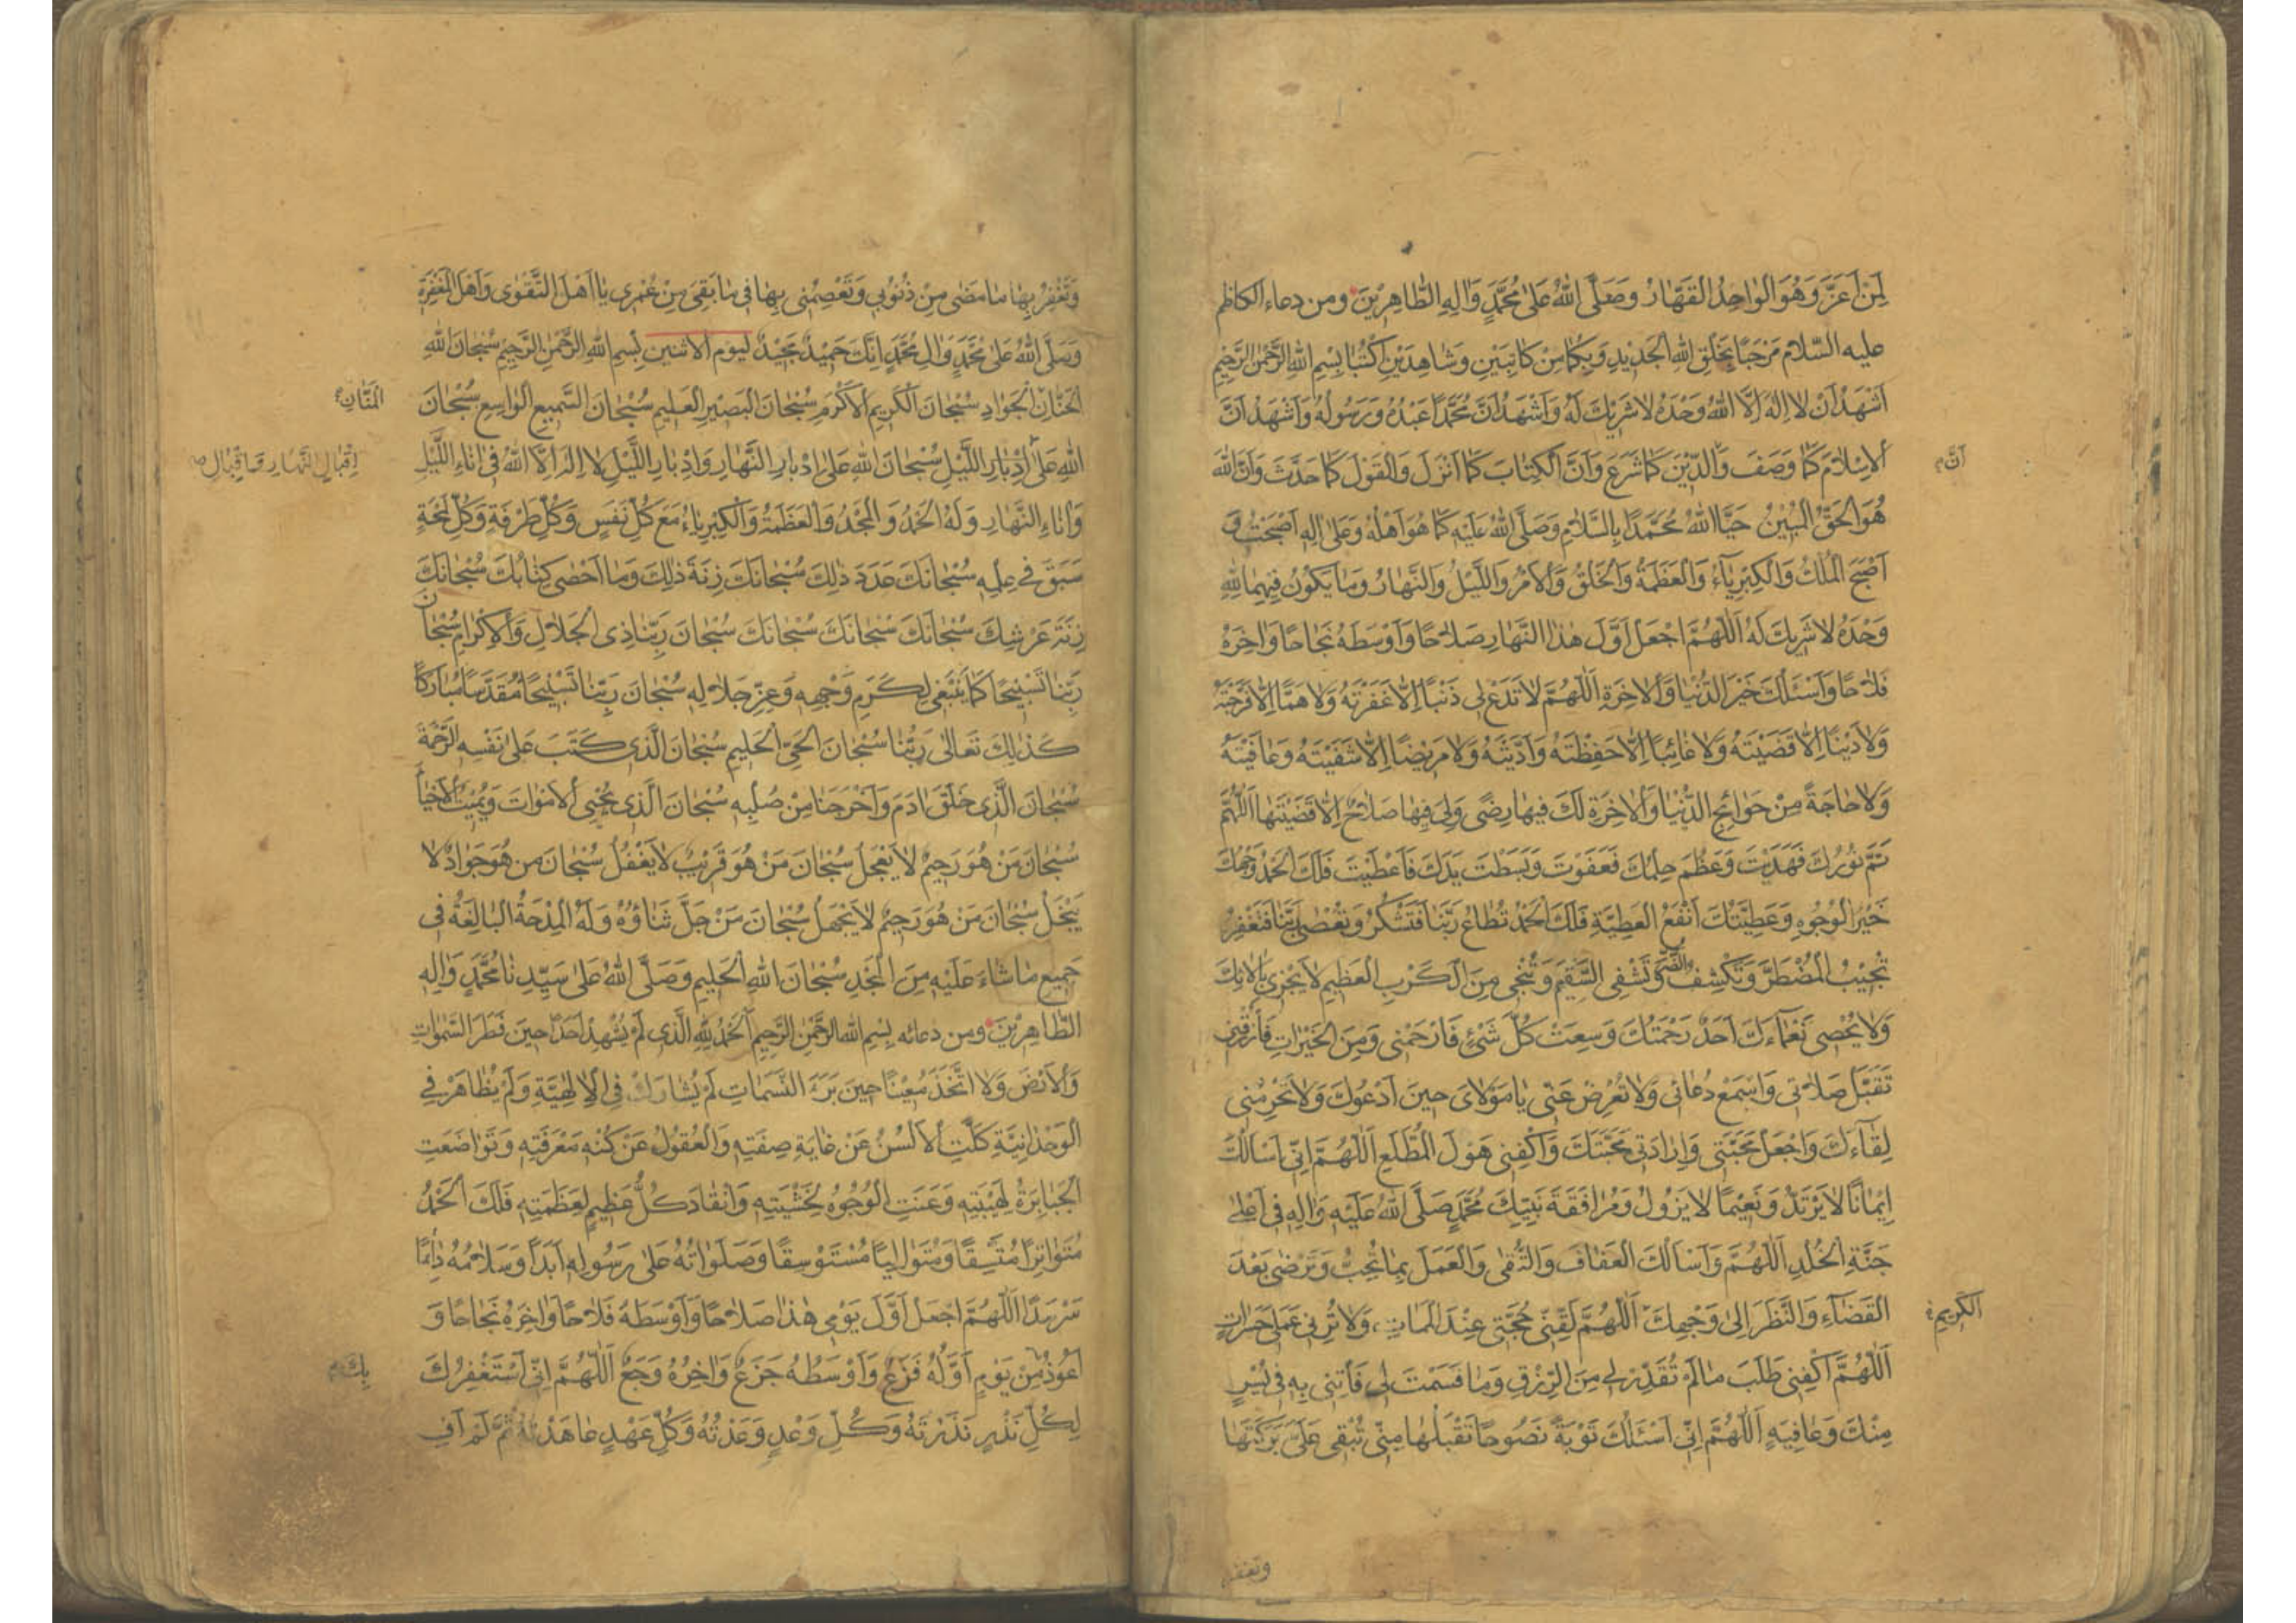 لِمَنْ اَعَزَّ وَهُوَ الْوٰاحِدُ الْقَهّٰارُ وَصَلَّى اللّٰهُ عَلىٰ مُحَمَّدٍ وَاٰلِهِ الطّٰاهِرِيْنَ ومن دعاء الكاظم
عليه السّلام مَرْحَبًا بِخَلْقِ اللّٰهِ الْجَدِيْدِ وَبِكُمٰا مِنْ كٰاتِبَيْنِ وَشٰاهِدَيْنِ اُكْتُبٰا بِسْمِ اللّٰهِ الرَّحْمٰنِ الرَّحِيْمِ
اَشْهَدُ اَنْ لٰا اِلٰهَ اِلَّا اللّٰهُ وَحْدَهُ لٰا شَرِيْكَ لَهُ وَاَشْهَدُ اَنَّ مُحَمَّدًا عَبْدُهُ وَرَسُولُهُ وَاَشْهَدُ اَنَّ
الْاِسْلٰامَ كَمٰا وَصَفَ وَالدِّيْنَ كَمٰا شَرَعَ وَاَنَّ الْكِتٰابَ كَمٰا اَنْزَلَ وَالْقَوْلَ كَمٰا حَدَّثَ وَاَنَّ اللّٰهَ
اَنَّ
هُوَ الْحَقُّ الْمُبِيْنُ حَيَّا اللّٰهُ مُحَمَّدًا بِالسَّلٰامِ وَصَلَّى اللّٰهُ عَلَيْهِ كَمٰا هُوَ اَهْلُهُ وَعَلىٰ اٰلِهِ اَصْبَحْتُ وَ
اَصْبَحَ الْمُلْكُ وَالْكِبْرِيٰاءُ وَالْعَظَمَةُ وَالْخَلْقُ وَالْاَمْرُ وَاللَّيْلُ وَالنَّهٰارُ وَمٰا يَكُونُ فِيْهِمٰا لِلّٰهِ
وَحْدَهُ لٰا شَرِيْكَ لَهُ اَللّٰهُمَّ اجْعَلْ اَوَّلَ هٰذَا النَّهٰارِ صَلٰاحًا وَاَوْسَطَهُ نَجٰاحًا وَاٰخِرَهُ
فَلٰاحًا وَاَسْئَلُكَ خَيْرَ الدُّنْيٰا وَالْاٰخِرَةِ اَللّٰهُمَّ لٰا تَدَعْ لِى ذَنْبًا اِلّٰا غَفَرْتَهُ وَلٰا هَمًّا اِلّٰا فَرَّجْتَهُ
وَلٰا دَيْنًا اِلّٰا قَضَيْتَهُ وَلٰا غٰائِبًا اِلّٰا حَفِظْتَهُ وَاَدَّيْتَهُ وَلٰا مَرِيْضًا اِلّٰا شَفَيْتَهُ وَعٰافَيْتَهُ
وَلٰا حٰاجَةً مِنْ حَوٰائِجِ الدُّنْيٰا وَالْاٰخِرَةِ لَكَ فِيهٰا رِضًى وَلِىَ فِيهٰا صَلٰاحٌ اِلّٰا قَضَيْتَهٰا اَللّٰهُمَّ
تَمَّ نُورُكَ فَهَدَيْتَ وَعَظُمَ حِلْمُكَ فَعَفَوْتَ وَبَسَطْتَ يَدَكَ فَاَعْطَيْتَ فَلَكَ الْحَمْدُ وَجْهُكَ
خَيْرُ الْوُجُوهِ وَعَطِيَّتُكَ اَنْفَعُ الْعَطِيَّةِ فَلَكَ الْحَمْدُ تُطٰاعُ رَبَّنٰا فَتَشْكُرُ وَتُعْصىٰ رَبَّنٰا فَتَغْفِرُ
تُجِيْبُ الْمُضْطَرَّ وَتَكْشِفُ الضُّرَّ وَتَشْفِى السَّقِيْمَ وَتُنْجِى مِنَ الْكَرْبِ الْعَظِيْمِ لٰا يَجْزِى بِاٰلٰائِكَ
وَلٰا يُحْصِى نَعْمٰاءَكَ اَحَدٌ رَحْمَتُكَ وَسِعَتْ كُلَّ شَىْءٍ فَارْحَمْنِى وَمِنَ الْخَيْرٰاتِ فَارْزُقْنِى
تَقَبَّلْ صَلٰاتِى وَاسْمَعْ دُعٰائِى وَلٰا تُعْرِضْ عَنِّى يٰا مَوْلٰاىَ حِينَ اَدْعُوكَ وَلٰا تَحْرِمْنِى
لِقٰاءَكَ وَاجْعَلْ مَحَبَّتِى وَاِرٰادَتِى مَحَبَّتَكَ وَاكْفِنِى هَوْلَ الْمُطَّلَعِ اَللّٰهُمَّ اِنِّى اَسْاَلُكَ
اِيْمٰانًا لٰا يَرْتَدُّ وَنَعِيْمًا لٰا يَزُولُ وَمُرٰافَقَةَ نَبِيِّكَ مُحَمَّدٍ صَلَّى اللّٰهُ عَلَيْهِ وَاٰلِهِ فِى اَعْلىٰ
جَنَّةِ الْخُلْدِ اَللّٰهُمَّ وَاَسْاَلُكَ الْعَفٰافَ وَالتُّقىٰ وَالْعَمَلَ بِمٰا تُحِبُّ وَتَرْضىٰ بَعْدَ
الْقَضٰاءِ وَالنَّظَرَ اِلىٰ وَجْهِكَ اَللّٰهُمَّ لَقِّنِّى حُجَّتِى عِنْدَ الْمَمٰاتِ وَلٰا تُرِنِى عَمَلِى حَسَرٰاتٍ
الْكَرِيْمِ
اَللّٰهُمَّ اكْفِنِى طَلَبَ مٰا لَمْ تُقَدِّرْ لِى مِنَ الرِّزْقِ وَمٰا قَسَمْتَ لِى فَأْتِنِى بِهِ فِى يُسْرٍ
مِنْكَ وَعٰافِيَةٍ اَللّٰهُمَّ اِنِّى اَسْئَلُكَ تَوْبَةً نَصُوحًا تَقْبَلُهٰا مِنِّى تُبْقِى عَلَىَّ بَرَكَتَهٰا
وتغفر
وَتَغْفِرُ بِهٰا مٰا مَضىٰ مِنْ ذُنُوبِى وَتَعْصِمُنِى بِهٰا فِى مٰا بَقِىَ مِنْ عُمْرِى يٰا اَهْلَ التَّقْوىٰ وَاَهْلَ الْمَغْفِرَةِ
وَصَلَّى اللّٰهُ عَلىٰ مُحَمَّدٍ وَاٰلِ مُحَمَّدٍ اِنَّكَ حَمِيْدٌ مَجِيْدٌ ليوم الاثنين بِسْمِ اللّٰهِ الرَّحْمٰنِ الرَّحِيْمِ سُبْحٰانَ اللّٰهِ
الْحَنّٰانِ الْجَوٰادِ سُبْحٰانَ الْكَرِيْمِ الْاَكْرَمِ سُبْحٰانَ الْبَصِيْرِ الْعَلِيْمِ سُبْحٰانَ السَّمِيْعِ الْوٰاسِعِ سُبْحٰانَ
الْمَنّٰانِ
اللّٰهِ عَلىٰ اِدْبٰارِ اللَّيْلِ سُبْحٰانَ اللّٰهِ عَلىٰ اِدْبٰارِ النَّهٰارِ وَاِدْبٰارِ اللَّيْلِ لٰا اِلٰهَ اِلَّا اللّٰهُ فِى اٰنٰاءِ اللَّيْلِ
اِقْبٰالِ النَّهٰارِ وَاِقْبٰالِ
وَاٰنٰاءِ النَّهٰارِ وَلَهُ الْحَمْدُ وَالْمَجْدُ وَالْعَظَمَةُ وَالْكِبْرِيٰاءُ مَعَ كُلِّ نَفَسٍ وَكُلِّ طَرْفَةٍ وَكُلِّ لَمْحَةٍ
سَبَقَ فِى عِلْمِهِ سُبْحٰانَكَ عَدَدَ ذٰلِكَ سُبْحٰانَكَ زِنَةَ ذٰلِكَ وَمٰا اَحْصىٰ كِتٰابُكَ سُبْحٰانَكَ
زِنَةَ عَرْشِكَ سُبْحٰانَكَ سُبْحٰانَكَ سُبْحٰانَكَ سُبْحٰانَ رَبِّنٰا ذِى الْجَلٰالِ وَالْاِكْرٰامِ سُبْحٰانَ
رَبِّنٰا تَسْبِيْحًا كَمٰا يَنْبَغِى لِكَرَمِ وَجْهِهِ وَعِزِّ جَلٰالِهِ سُبْحٰانَ رَبِّنٰا تَسْبِيْحًا مُقَدَّسًا مُبٰارَكًا
كَذٰلِكَ تَعٰالىٰ رَبُّنٰا سُبْحٰانَ الْحَىِّ الْحَلِيْمِ سُبْحٰانَ الَّذِى كَتَبَ عَلىٰ نَفْسِهِ الرَّحْمَةَ
سُبْحٰانَ الَّذِى خَلَقَ اٰدَمَ وَاَخْرَجَنٰا مِنْ صُلْبِهِ سُبْحٰانَ الَّذِى يُحْيِى الْاَمْوٰاتَ وَيُمِيْتُ الْاَحْيٰاءَ
سُبْحٰانَ مَنْ هُوَ رَحِيْمٌ لٰا يَعْجَلُ سُبْحٰانَ مَنْ هُوَ قَرِيْبٌ لٰا يَغْفُلُ سُبْحٰانَ مَنْ هُوَ جَوٰادٌ لٰا
يَبْخَلُ سُبْحٰانَ مَنْ هُوَ رَحِيْمٌ لٰا يَجْهَلُ سُبْحٰانَ مَنْ جَلَّ ثَنٰاؤُهُ وَلَهُ الْمِدْحَةُ الْبٰالِغَةُ فِى
جَمِيْعِ مٰا شٰاءَ عَلَيْهِ مِنَ الْمَجْدِ سُبْحٰانَ اللّٰهِ الْحَلِيْمِ وَصَلَّى اللّٰهُ عَلىٰ سَيِّدِنٰا مُحَمَّدٍ وَاٰلِهِ
الطّٰاهِرِيْنَ ومن دعائه بِسْمِ اللّٰهِ الرَّحْمٰنِ الرَّحِيْمِ اَلْحَمْدُ لِلّٰهِ الَّذِى لَمْ يُشْهِدْ اَحَدًا حِينَ فَطَرَ السَّمٰوٰاتِ
وَالْاَرْضَ وَلٰا اتَّخَذَ مُعِيْنًا حِيْنَ بَرَءَ النَّسَمٰاتِ لَمْ يُشٰارَكْ فِى الْاِلٰهِيَّةِ وَلَمْ يُظٰاهَرْ فِى
الْوَحْدٰانِيَّةِ كَلَّتِ الْاَلْسُنُ عَنْ غٰايَةِ صِفَتِهِ وَالْعُقُولُ عَنْ كُنْهِ مَعْرِفَتِهِ وَتَوٰاضَعَتِ
الْجَبٰابِرَةُ لِهَيْبَتِهِ وَعَنَتِ الْوُجُوهُ لِخَشْيَتِهِ وَانْقٰادَ كُلُّ عَظِيْمٍ لِعَظَمَتِهِ فَلَكَ الْحَمْدُ
مُتَوٰاتِرًا مُتَّسِقًا وَمُتَوٰالِيًا مُسْتَوْسِقًا وَصَلَوٰاتُهُ عَلىٰ رَسُولِهِ اَبَدًا وَسَلٰامُهُ دٰائِمًا
سَرْمَدًا اَللّٰهُمَّ اجْعَلْ اَوَّلَ يَوْمِى هٰذٰا صَلٰاحًا وَاَوْسَطَهُ فَلٰاحًا وَاٰخِرَهُ نَجٰاحًا وَ
اَعُوذُ مِنْ يَوْمٍ اَوَّلُهُ فَزَعٌ وَاَوْسَطُهُ جَزَعٌ وَاٰخِرُهُ وَجَعٌ اَللّٰهُمَّ اِنِّى اَسْتَغْفِرُكَ
بِكَ
لِكُلِّ نَذْرٍ نَذَرْتُهُ وَكُلِّ وَعْدٍ وَعَدْتُهُ وَكُلِّ عَهْدٍ عٰاهَدْتُهُ ثُمَّ لَمْ اَفِ